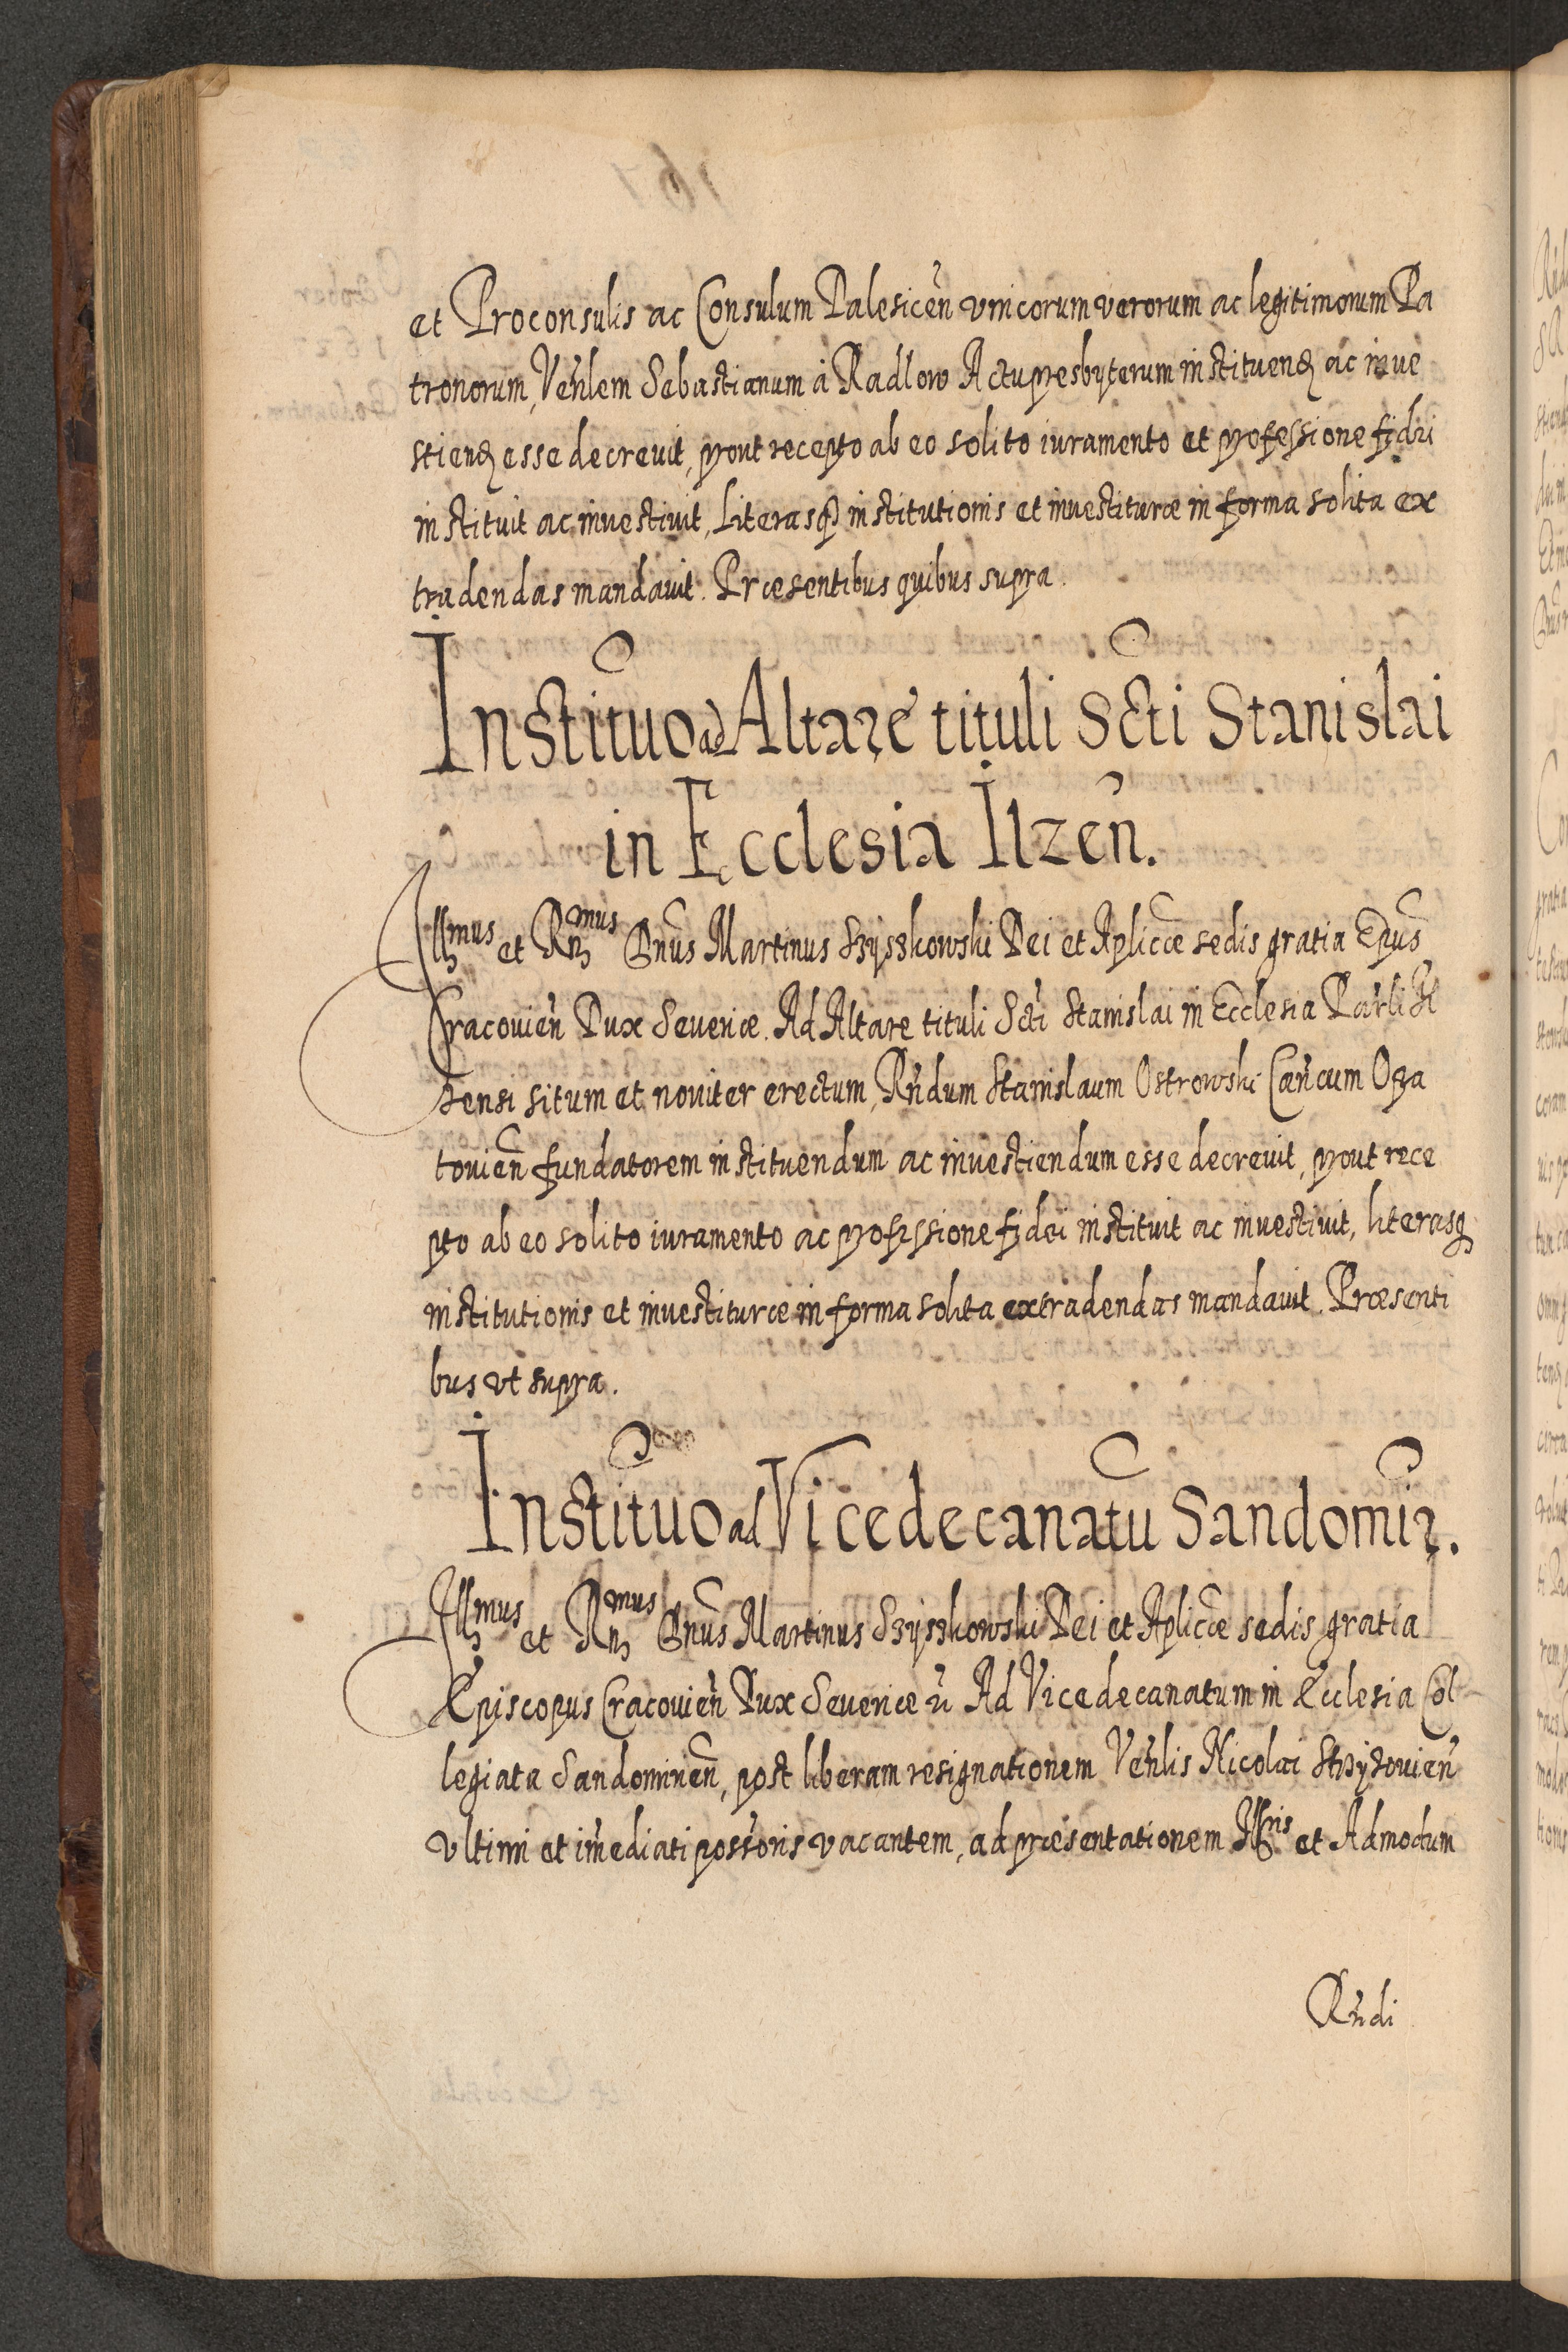 et Proconsulis ac Consulum Palesicen̄ vnicorum verorum ac legitimorum Pa
tronorum, Ven̄lem Sebastianum à Radlow Actupresbyterum instituenꝗ ac inve
stienꝗ esse decreuit, prout recepto ab eo solito iuramento et professione fidei
instituit ac investiuit, Literasꝗ institutionis et investituræ in forma solita ex
tradendas mandauit. Præsentibus quibus supra.
Institu͠o ad Altare tituli S͠cti Stanislai
in Ecclesia Ilzen̄.
Illmus et Rmus Dn̄us Martinus Szyszkowski Dei et Aplicæ sedis gratia Ep̄us
Cracouien̄ Dux Seueriæ. Ad Altare tituli S͠cti Stanislai in Ecclesia Par̄li Il
zensi situm et nouiter erectum, Rn̄dum Stanislaum Ostrowski Can̄cum Opa
touien̄ fundatorem instituendum ac investiendum esse decreuit, prout rece
pto ab eo solito iuramento ac professione fidei instituit ac investiuit, literasꝗ
institutionis et investituræ in forma solita extradendas mandauit. Præsenti
bus vt supra.
Institu͠o ad Vicedecanatu͠ Sandomir̄.
Illmus et Rmus Dn̄us Martinus Szyszkowski Dei et Aplicæ sedis gratia
Episcopus Cracouien̄ Dux Seueriæ Ad Vicedecanatum in Ecclesia Col
legiata Sandomirien̄, post liberam resignationem Ven̄lis Nicolai Strzyzouien̄
vltimi et im̄ediati poss̄oris vacantem, ad præsentationem Illris et Admodum
Rn̄di